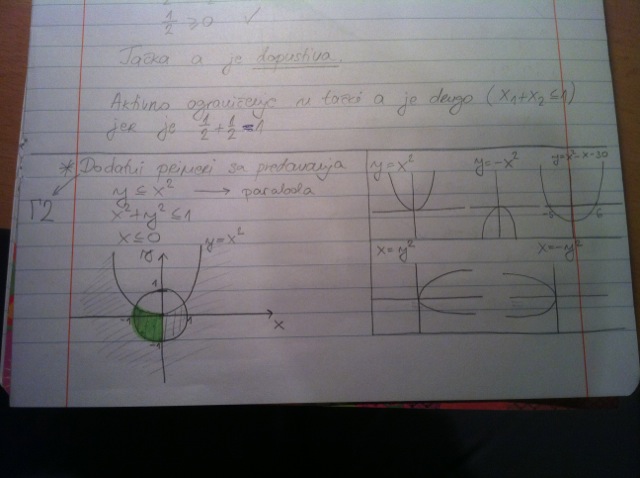 1/2 ≥ 0 ✓
Tačka a je dopustiva.
Aktivno ograničenje u tački a je drugo (x₁+x₂≤1)
jer je 1/2 + 1/2 = 1
* Dodatni primeri sa predavanja
Γ2
y ≤ x² → parabola
x²+y² ≤ 1
x ≤ 0
y=x²
y
1
-1
1
x
-1
y=x²
y=-x²
y=x²-x-30
-5
6
x=y²
x=-y²